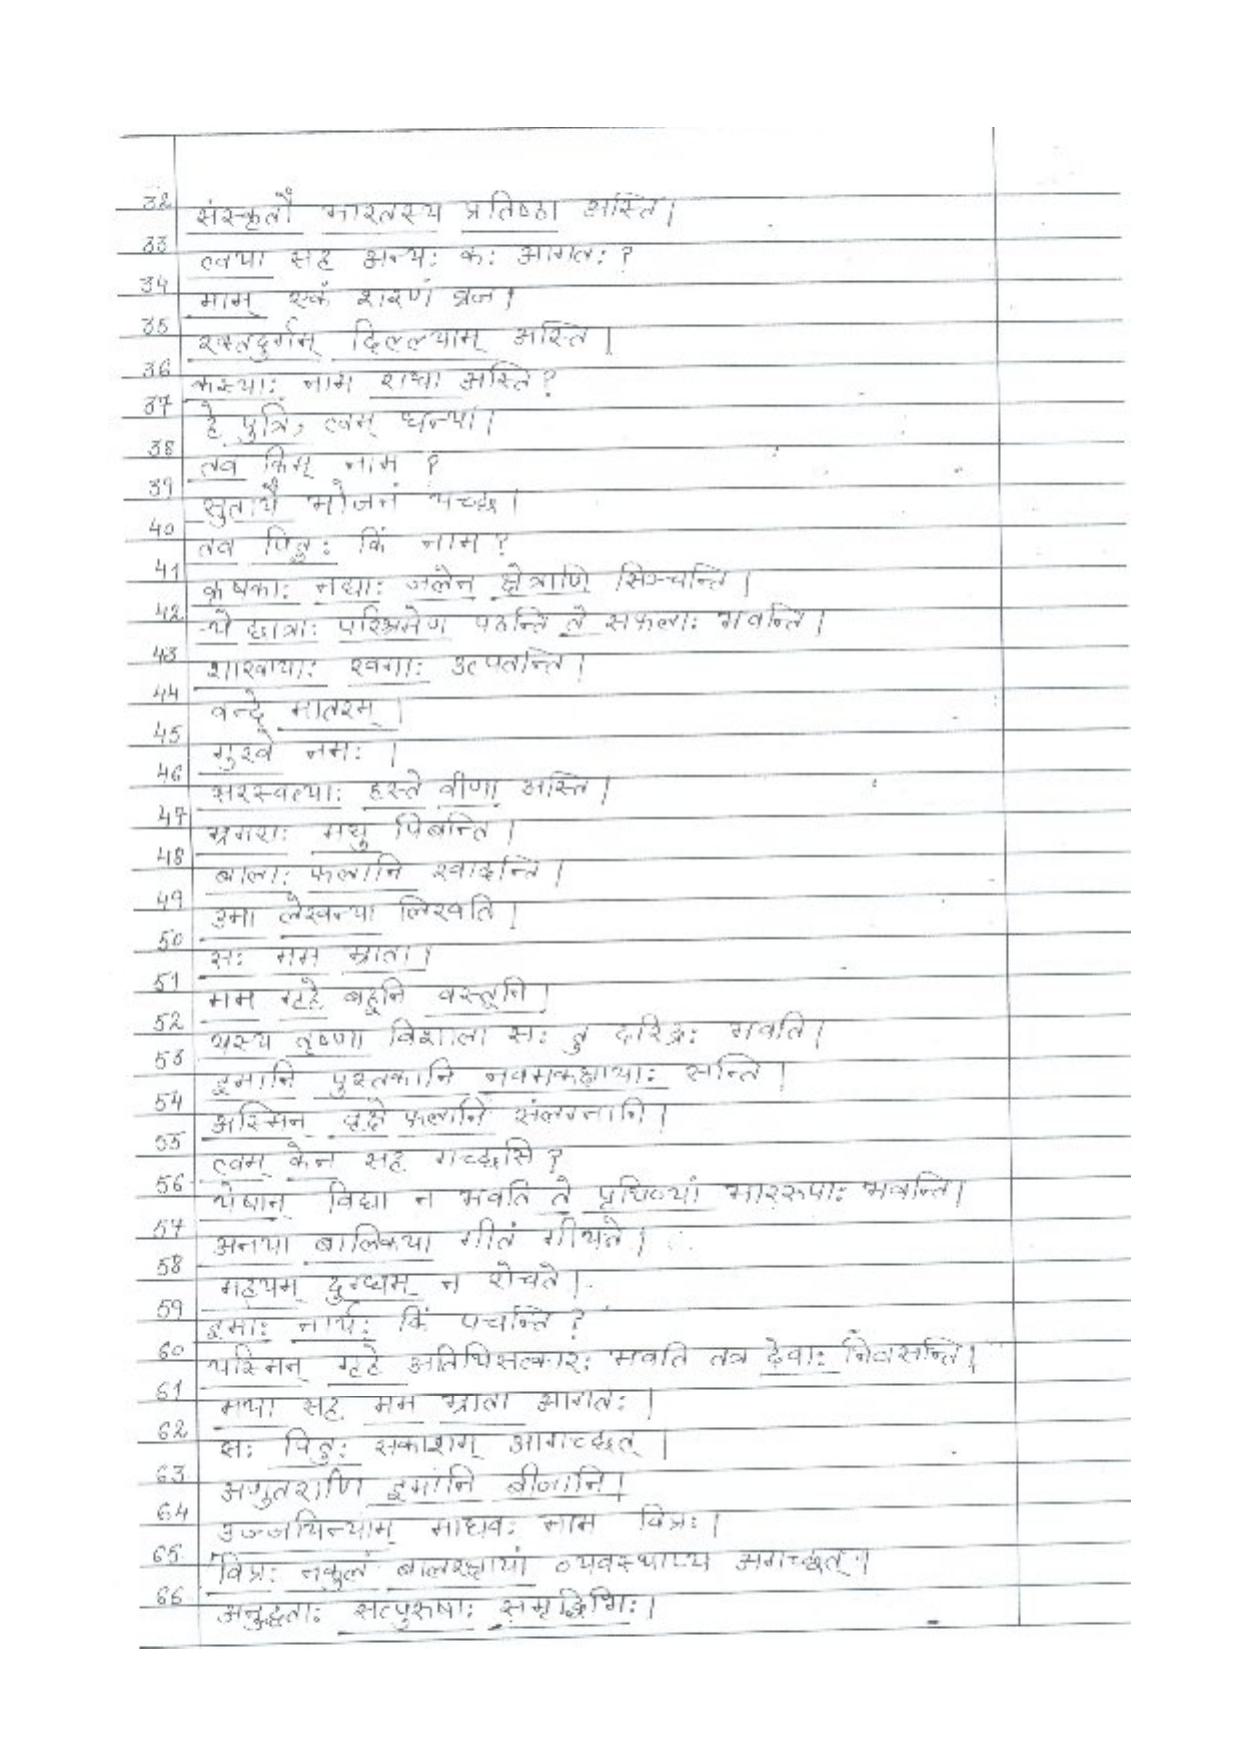 32 संस्कृतौ भारतस्य प्रतिष्ठा अस्ति।
33 त्वया सह अन्यः कः आगतः?
34 माम् एकं शरणं व्रज।
35 रक्तदुर्गम् दिल्ल्याम् अस्ति।
36 कस्याः नाम राधा अस्ति?
37 हे पुत्रि, त्वम् धन्या।
38 तव किम् नाम ?
39 सुतायै भोजनं यच्छ।
40 तव पितुः किं नाम ?
41 कृषकाः नद्याः जलेन क्षेत्राणि सिञ्चन्ति।
42 ये छात्राः परिश्रमेण पठन्ति ते सफलाः भवन्ति।
43 शाखायाः खगाः उत्पतन्ति।
44 वन्दे मातरम्।
45 गुरवे नमः ।
46 सरस्वत्याः हस्ते वीणा अस्ति।
47 भ्रमराः मधु पिबन्ति।
48 बालाः फलानि खादन्ति।
49 उमा लेखन्या लिखति।
50 सः मम भ्राता।
51 मम गृहे बहूनि वस्तूनि।
52 यस्य तृष्णा विशाला सः तु दरिद्रः भवति।
53 इमानि पुस्तकानि नवमकक्षायाः सन्ति।
54 अस्मिन वृक्षे फलानि संलग्नानि।
55 त्वम् केन सह गच्छसि ?
56 येषान् विद्या न भवति ते पृथिव्यां भाररूपाः भवन्ति।
57 अनया बालिकया गीतं गीयते।
58 मह्यम् दुग्धम् न रोचते।
59 इमाः नार्यः किं पचन्ति ?
60 यस्मिन् गृहे अतिथिसत्कारः भवति तत्र देवाः निवसन्ति।
61 मया सह मम भ्राता आगतः।
62 सः पितुः सकाशम् आगच्छत्।
63 अणुतराणि इमानि बीजानि।
64 उज्जयिन्याम् माधवः नाम विप्रः।
65 विप्रः नकुलं बालरक्षायां व्यवस्थाप्य अगच्छत्।
66 अनुद्धताः सत्पुरुषाः समृद्धिभिः।